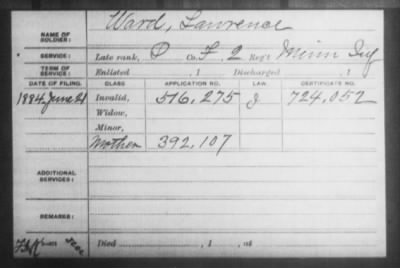 NAME OF SOLDIER: Ward, Lawrence
SERVICE: Late rank, P Co. F, 2 Reg't Minn Inf
TERM OF SERVICE: Enlisted , 1 Discharged , 1
DATE OF FILING. CLASS. APPLICATION NO. LAW. CERTIFICATE NO.
1884 June 21 Invalid, 516,275 J 724,052
Widow,
Minor,
Mother 392,107
ADDITIONAL SERVICES:
REMARKS:
Died , 1 , at